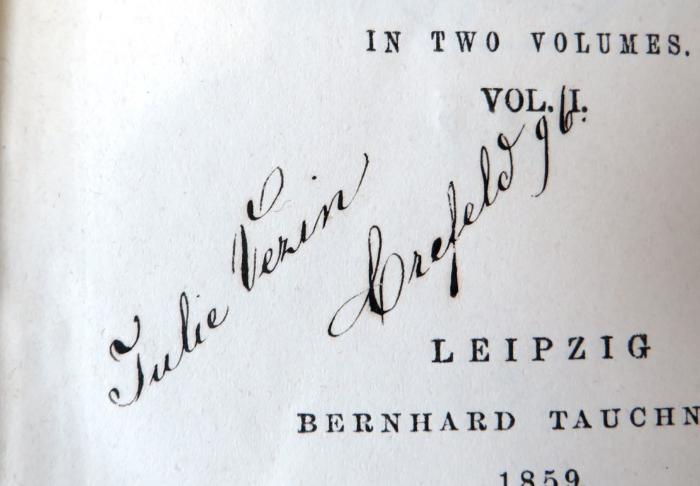 IN TWO VOLUMES.
VOL. I.
Julie Vezin
Crefeld 96.
LEIPZIG
BERNHARD TAUCHN
1859